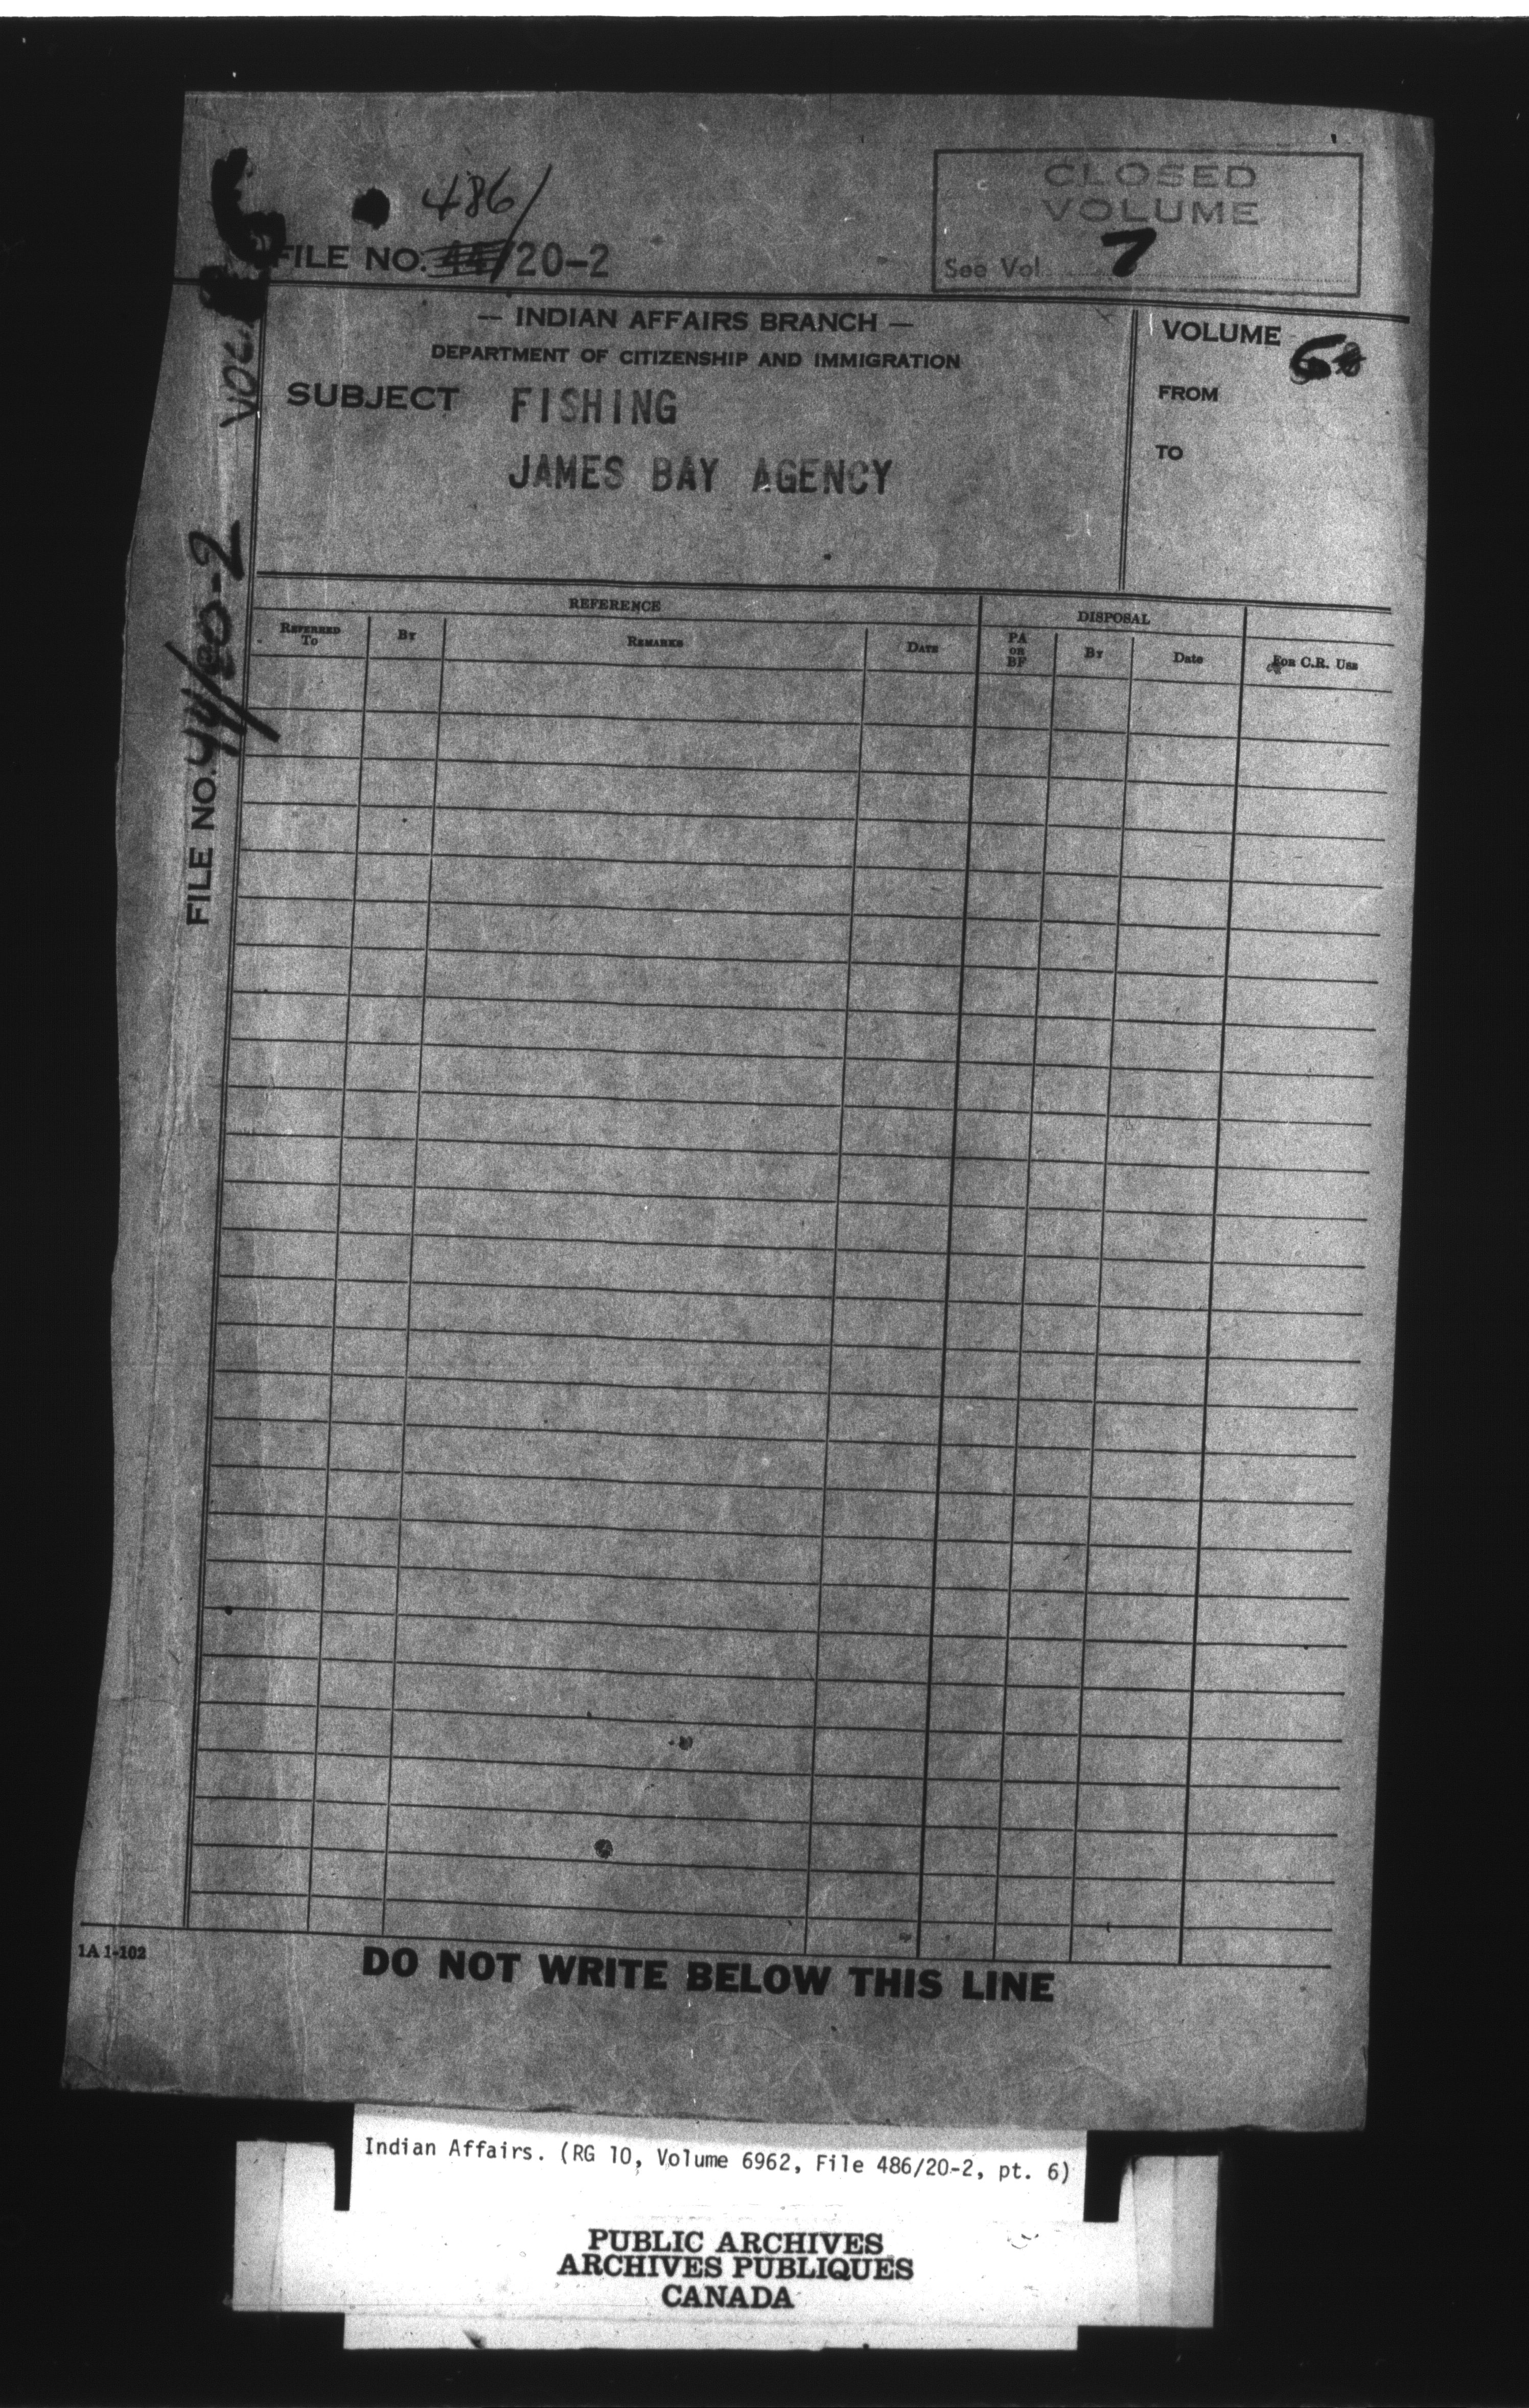 486/
FILE NO. 44/20-2
CLOSED
VOLUME
See Vol. 7
— INDIAN AFFAIRS BRANCH —
DEPARTMENT OF CITIZENSHIP AND IMMIGRATION
SUBJECT FISHING
JAMES BAY AGENCY
VOLUME 6
FROM
TO
FILE NO. 44/20-2 VOL.
REFERENCE
DISPOSAL
REFERRED TO
BY
REMARKS
DATE
PA OR BF
BY
Date
FOR C.R. USE
1A 1-102
DO NOT WRITE BELOW THIS LINE
Indian Affairs. (RG 10, Volume 6962, File 486/20-2, pt. 6)
PUBLIC ARCHIVES
ARCHIVES PUBLIQUES
CANADA